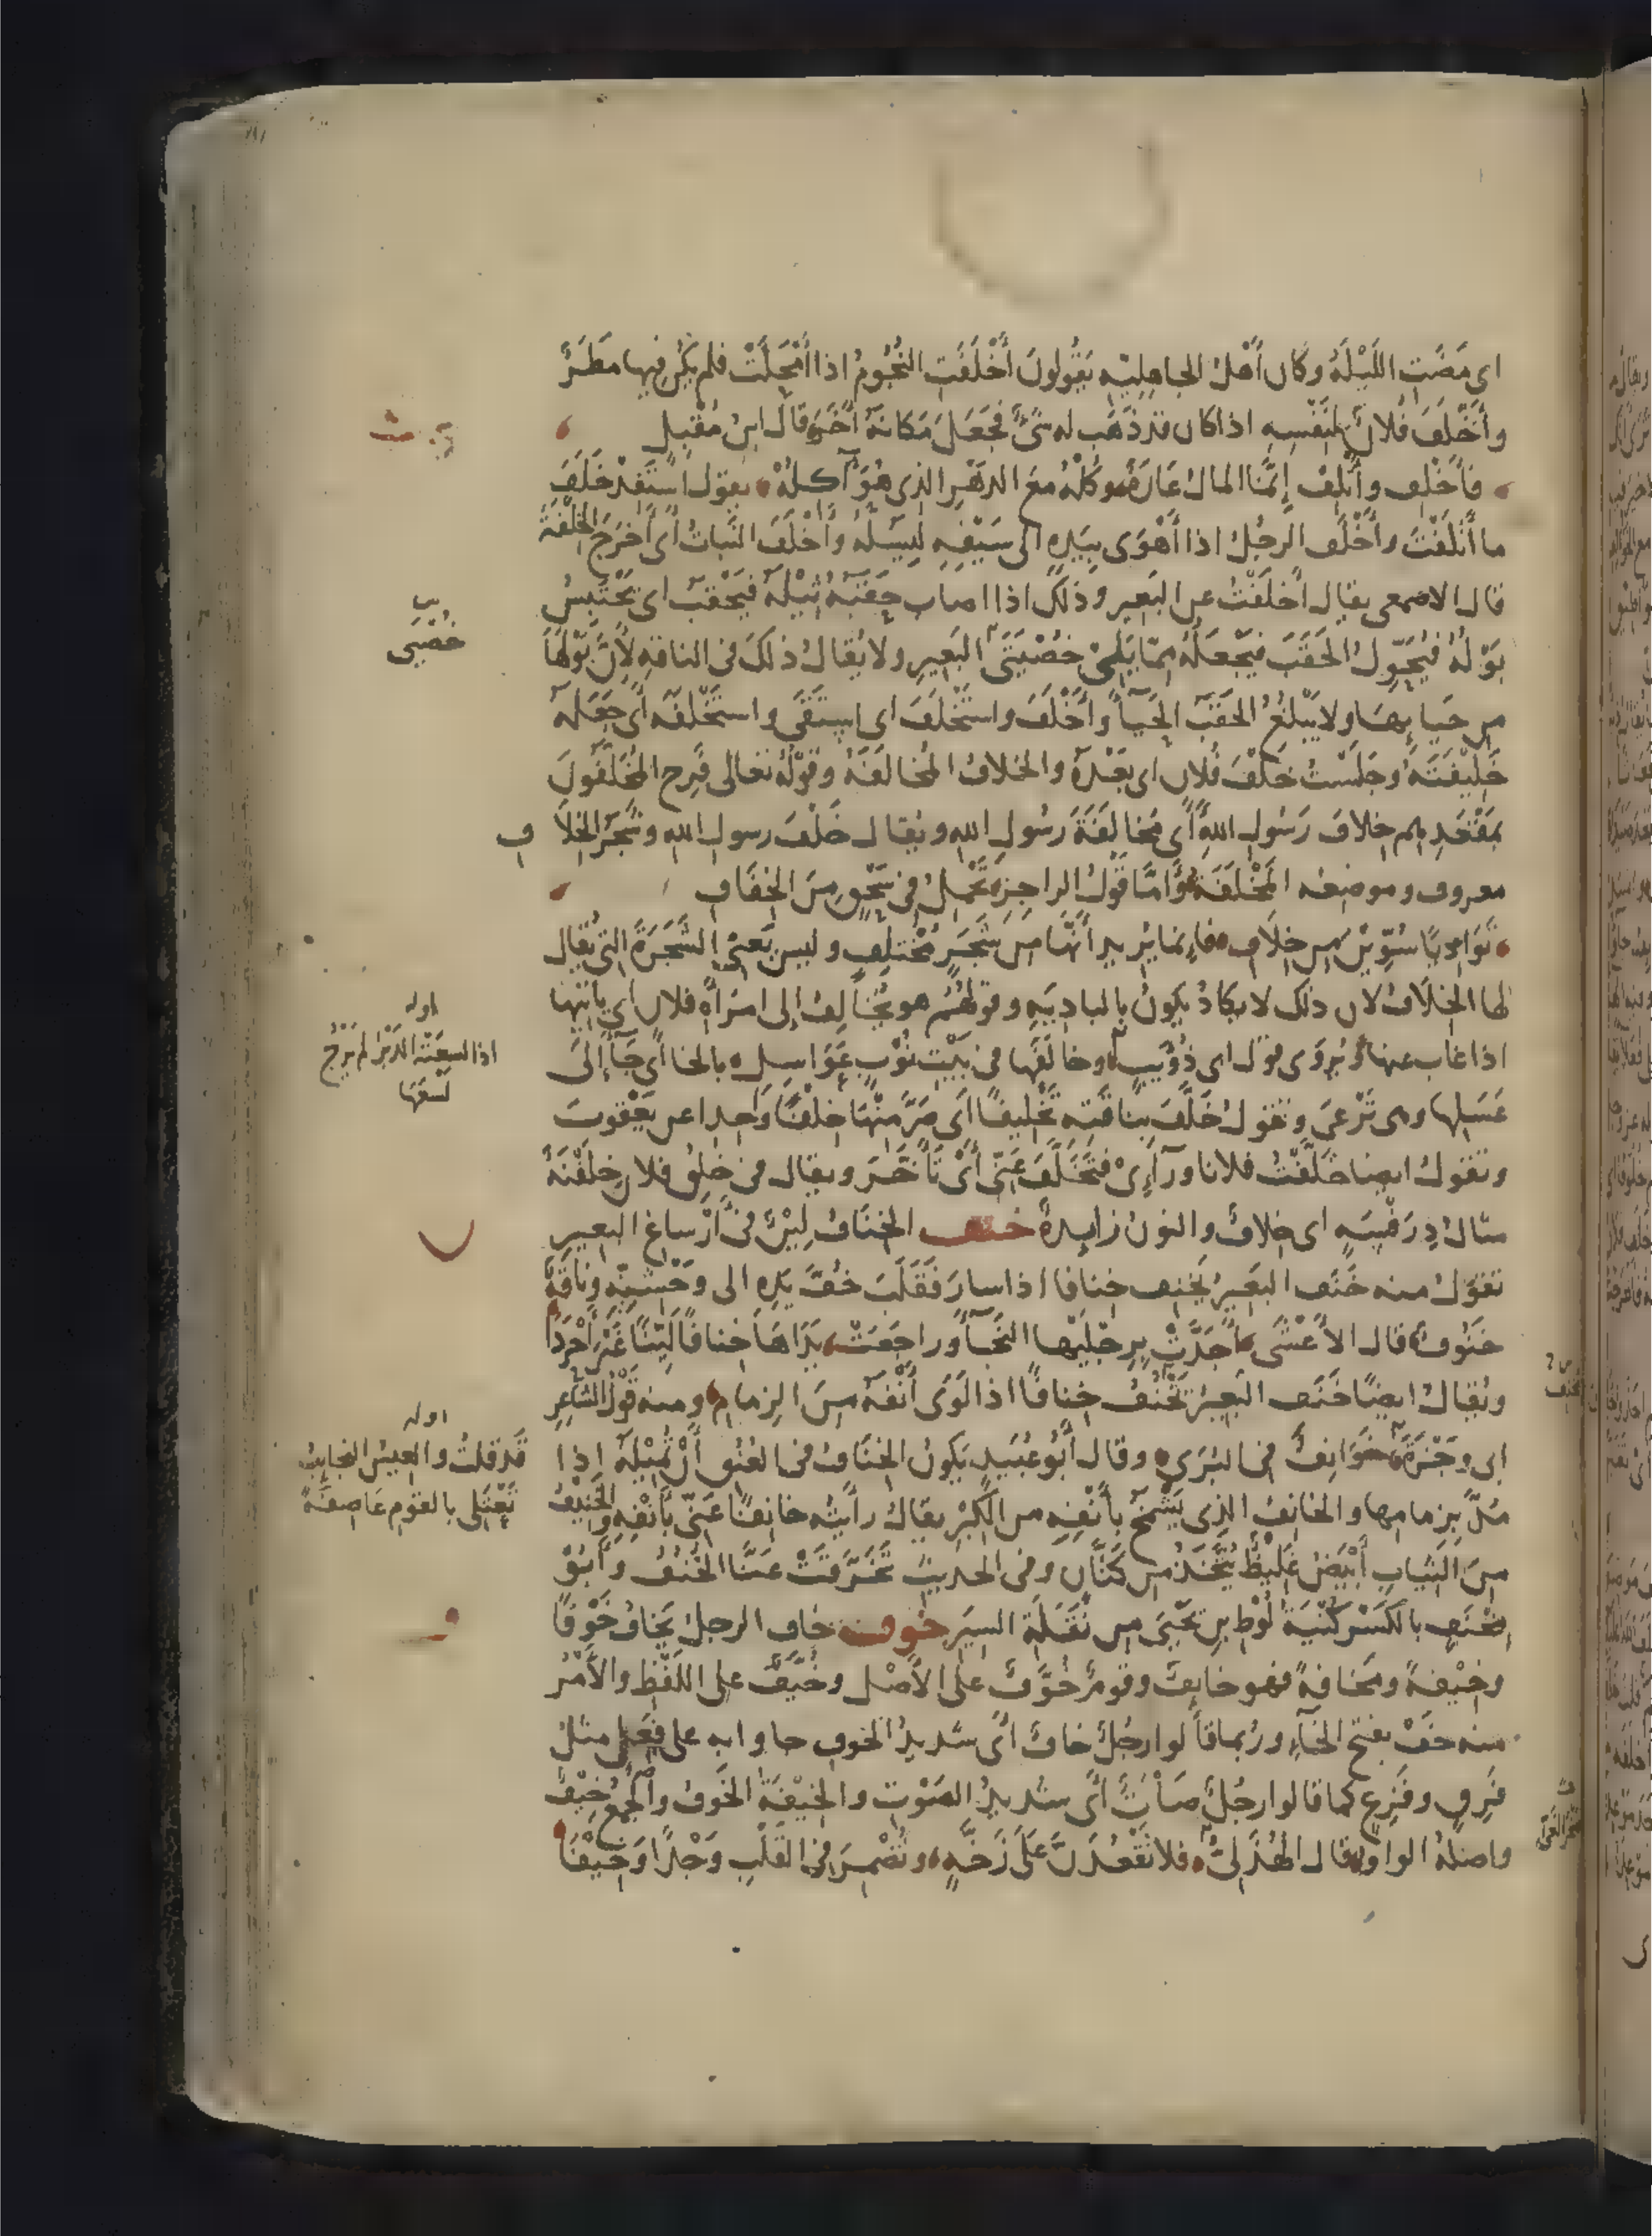 اى مَضَتِ اللَّيْلَهُ وكان أَهْلُ الجاهِلِيّهِ يَقُولُونَ أَخْلَفَتِ النُّجُومُ اذا أَمْحَلَتْ فلم يَكُنْ فيها مَطَرٌ
وأَخْلَفَ فُلانٌ لِنَفْسِهِ اذا كان قد ذَهَب له شَىْءٌ فجَعَلَ مَكانَهُ آخَرَ قال ابنُ مُقْبِلٍ
فأَخْلِف وأَتْلِفْ إِنَّما المالُ عَارَةٌ وكُلْهُ معَ الدهْرِ الذى هُوَ آكلُهْ يقول اسْتَفِدْ خَلَفَ
ما أَتْلَفْتَ وأَخْلَفَ الرجُلُ اذا أَهْوَى بيَدِهِ الى سَيْفِهِ لِيَسُلَّهُ وأَخْلَفَ النَّباتُ أى أَخرَجَ الخِلْفَةَ
قال الاصمعى يقال أَخلَفْتُ عن البَعِير وذلك اذا اصاب حَقَبُهُ ثِيْلَهُ فيَحْقَبُ اى يَحْتَبِسُ
بَوْلُهُ فيُحَوِّلُ الحَقَبَ فيَجْعَلُهُ مِمّا يَلِىْ خُصْيَتَىِ البَعِيرِ ولا يُقالُ ذلكَ فى الناقهِ لأَنَّ بَوْلَهَا
من حَيائِهَا ولا يَبْلُغُ الحَقَبُ الحَياءَ وأَخْلَفَ واستَخْلَفَ اى اسْتَقَى واستَخْلَفَه أى جَعَلَهُ
خَلِيْفَتَهُ وجَلَسْتُ خَلْفَ فُلان اى بَعْدَهُ والخلافُ المُخالَفَةُ وقوْلُهُ تعالى فَرِح المُخَلَّفُونَ
بمَقْعَدِهِم خِلافَ رَسُولِ اللهِ أى مُخالَفَةَ رسُولِ اللهِ ويُقال خَلْفَ رسولِ اللهِ وشَجَرُ الخِلاَفِ
معروف وموضعُه المَخْلَفَةُ وأمّا قَوْلُ الراجِزِ تَحْمِلُ فى سَحْقٍ مِنَ الخِفَافِ
تَوَادِيًا سُوِّيْنَ من خِلاَفِ فإنما يُريد أَنَّها من شَجَرٍ مُخْتلِفٍ وليس يَعْنِى الشَّجَرَةَ التى يُقال
لها الخِلاَفُ لان ذلك لا يكادُ يكونُ بالبادِيَهِ وقولُهُمْ هو يُخالِفُ إلى امْرَأَةِ فلان اى يأْتيها
اذا غاب عنها ويُرْوَى قول ابى ذُؤَيبٍ وخالَفَها فى بَيْتِ نُوْبٍ عَوَاسِلِ بالخا أى جَآءَ إلى
عَسَلِها وهى تَرْعَى وتقولُ خَلَّفَ بناقَتِه تَخْلِيفًا أى صَرَّ مِنْهَا خِلْفًا وَاحِدا عن يَعْقوبَ
وتقولُ ايضا خَلَّفْتُ فلانا ورآءِىْ فتَخَلَّفَ عَنِّى أىْ تَأَخَّرَ ويقال فى خُلُقِ فلان خِلَفْنَةٌ
مثالُ دِرَفْسَهٍ اى خلافٌ والنونُ زايدةٌ خنف الخِنَافُ لِيْنٌ فى أَرْساغِ البعيرِ
تقول منه خَنَف البَعِيرُ يَخنِف خِنافا اذا سارَ فقَلَبَ خُفَّ يَدِهِ الى وَحْشِيِّه وناقَةٌ
خَنُوفٌ قال الأَعْشَى أَجَدَّتْ بِرِجْلَيْها النَّجَآءَ وراجَعَتْ يَدَاهَا خِنافًا لَيِّنًا غَيْرَ أَحْرَدَا
ويُقالُ ايضًا خَنَف البَعِيرُ يَخْنِفُ خِنافًا اذا لَوَى أَنْفَهُ مِنَ الزمامِ ومنه قَوْلُ الشاعِرِ
ابى وَجْزَةَ خَوَانِفُ فى البُرَى وقال أَبُو عُبَيدٍ يَكُونُ الخِنَافُ فى العُنُقِ أَنْ تُمِيْلَهُ اذا
مُدَّ بِزمامِها والخانِفُ الذى يَشْمَخُ بأَنْفِهِ من الكِبْرِ يقالُ رأيتُه خانِفًا عَنِّى بأَنْفِهِ والخَنِيْفُ
مِنَ الثِّيابِ أَبْيَضُ غَلِيْظٌ يُتَّخَذُ من كَتَّانٍ وفى الحديثِ تَخَرَّقَتْ عنّا الخُنُفُ وأَبُوْ
مِخْنَفٍ بالكَسْرِ كُنْيَةُ لُوْطِ بنِ يَحْيَى من نَقَلَةِ السِيَرِ خوف خاف الرجلُ يَخافُ خَوْفًا
وخِيْفةً ومَخافةً فهو خايفٌ وقومٌ خُوَّفٌ على الأَصْل وخُيَّفٌ على اللَفْظِ والأَمْرُ
منه خَفْ بفتح الخآءِ ورُبما قالوا رجُلٌ خافٌ أى شَدِيدُ الخوفِ جاوا به على فَعِلٍ مثلُ
فَرِقٍ وفَزِعٍ كما قالوا رجُلٌ صاتٌ أى شديدُ الصَوْتِ والخِيْفَةُ الخَوفُ والجَمْعُ خِيْفٌ
واصلُهُ الواو وقال الهُذَلِىُّ فلا تَقْعُدَنَّ على زَخَّةٍ وتُضْمِرَ فى القَلْبِ وَجْدًا وَخِيْفَا
خُصْيَى
اوله
اذا لسعَتْه الدَبْرُ لم يَرْجُ
لَسْعَهَا
اوله
قَد قلتُ والعِيسُ النجايبُ
تَغْتَلى بالقوم عَاصفَةً